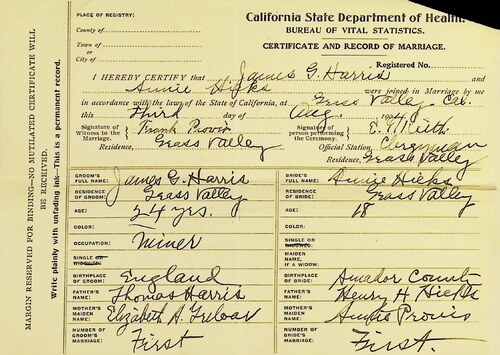 PLACE OF REGISTRY:
County of
Town of
or
City of
California State Department of Health.
BUREAU OF VITAL STATISTICS.
CERTIFICATE AND RECORD OF MARRIAGE.
Registered No.
I HEREBY CERTIFY that James G. Harris and
Annie Hicks were joined in Marriage by me
in accordance with the laws of the State of California, at Grass Valley Cal.
this Third day of Aug. 1904
Signature of Witness to the Marriage Frank Provis Signature of person performing the Ceremony
Residence, Grass Valley Official Station, Clergyman
Residence, Grass Valley
GROOM'S FULL NAME: James G. Harris BRIDE'S FULL NAME: Annie Hicks
RESIDENCE OF GROOM: Grass Valley RESIDENCE OF BRIDE: Grass Valley
AGE: 24 yrs. AGE: 18
COLOR: COLOR:
OCCUPATION: Miner SINGLE OR WIDOWED:
SINGLE OR WIDOWED: MAIDEN NAME, IF A WIDOW:
BIRTHPLACE OF GROOM: England BIRTHPLACE OF BRIDE: Amador County
FATHER'S NAME: Thomas Harris FATHER'S NAME: Henry H. Hicks
MOTHER'S MAIDEN NAME: Elizabeth A. Treloar MOTHER'S MAIDEN NAME: Annie Provis
NUMBER OF GROOM'S MARRIAGE: First NUMBER OF BRIDE'S MARRIAGE: First
MARGIN RESERVED FOR BINDING—NO MUTILATED CERTIFICATE WILL
BE RECEIVED.
Write plainly with unfading ink—This is a permanent record.